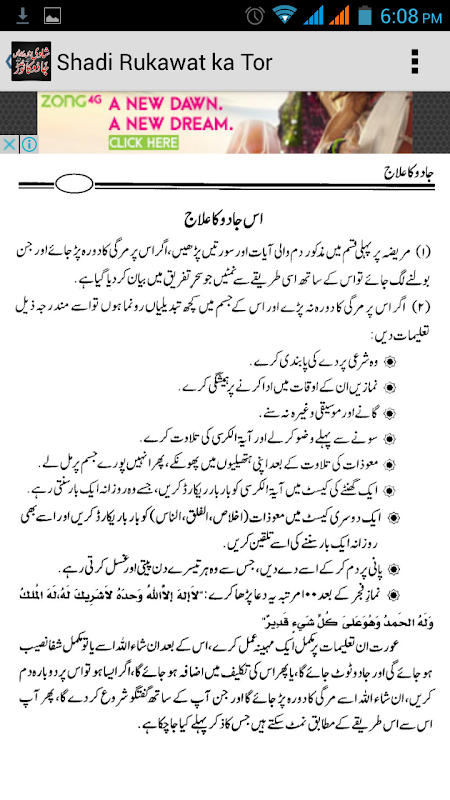 6:08 PM
شادی
جادو کا توڑ
Shadi Rukawat ka Tor
ZONG4G
A NEW DAWN.
A NEW DREAM.
CLICK HERE
جادو کا علاج
اس جادو کا علاج
(۱) مریضہ پر پہلی قسم میں مذکور دم والی آیات اور سورتیں پڑھیں، اگر اس پر مرگی کا دورہ پڑ جائے اور جن
بولنے لگ جائے تو اس کے ساتھ اسی طریقے سے نمٹیں جو سحرِ تفریق میں بیان کر دیا گیا ہے.
(۲) اگر اس پر مرگی کا دورہ نہ پڑے اور اس کے جسم میں کچھ تبدیلیاں رونما ہوں تو اسے مندرجہ ذیل
تعلیمات دیں:
وہ شرعی پردے کی پابندی کرے.
نمازیں ان کے اوقات میں ادا کرنے پر ہمیشگی کرے.
گانے اور موسیقی وغیرہ نہ سنے.
سونے سے پہلے وضو کر لے اور آیۃ الکرسی کی تلاوت کرے.
معوذات کی تلاوت کے بعد اپنی ہتھیلیوں میں پھونکے، پھر انہیں پورے جسم پر مل لے.
ایک گھنٹے کی کیسٹ میں آیۃ الکرسی کو بار بار ریکارڈ کریں، جسے وہ روزانہ ایک بار سنتی رہے.
ایک دوسری کیسٹ میں معوذات (اخلاص، الفلق، الناس) کو بار بار ریکارڈ کریں اور اسے بھی
روزانہ ایک بار سننے کی اسے تلقین کریں.
پانی پر دم کر کے اسے دے دیں، جس سے وہ ہر تیسرے دن پیتی اور غسل کرتی رہے.
نمازِ فجر کے بعد ۱۰۰ مرتبہ یہ دعا پڑھا کرے: "لاَ إلهَ إلاَّ اللهُ وَحدَهُ لاَشَرِيكَ لَهُ، لَهُ المُلكُ
وَلَهُ الحَمدُ وَهُوَ عَلىَ كُلِّ شَيءٍ قَدِيرٌ"
عورت ان تعلیمات پر مکمل ایک مہینہ عمل کرے، اس کے بعد ان شاء اللہ اسے یا تو مکمل شفا نصیب
ہو جائے گی اور جادو ٹوٹ جائے گا، یا پھر اس کی تکلیف میں اضافہ ہو جائے گا، اگر ایسا ہو تو اس پر دوبارہ دم
کریں، ان شاء اللہ اسے مرگی کا دورہ پڑ جائے گا اور جن آپ کے ساتھ گفتگو شروع کر دے گا، پھر آپ
اس سے اس طریقے کے مطابق نمٹ سکتے ہیں جس کا ذکر پہلے کیا جا چکا ہے.